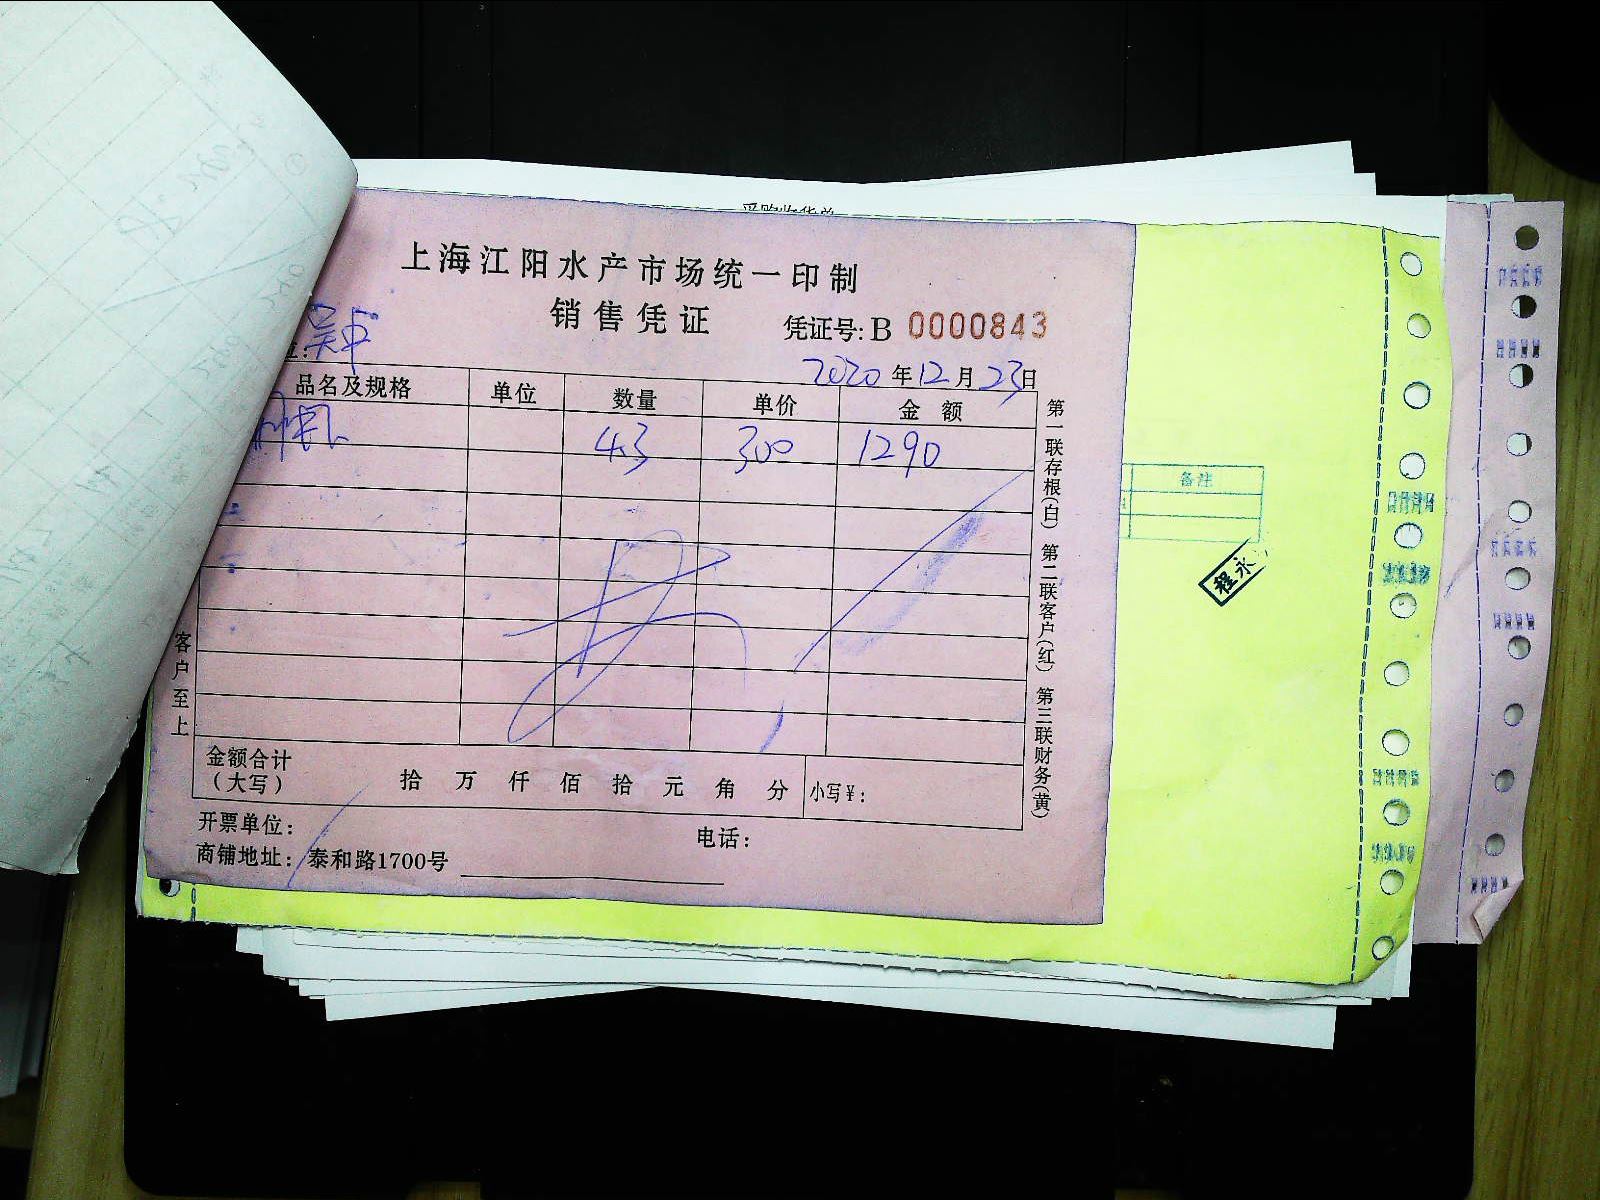 上海江阳水产市场统一印制
销售凭证
凭证号: B 0000843
2020年12月23日
品名及规格 单位 数量 单价 金额
4.3 300 1290
客户至上
金额合计(大写) 拾 万 仟 佰 拾 元 角 分 小写¥:
开票单位: 电话:
商铺地址: 泰和路1700号
第一联存根(白) 第二联客户(红) 第三联财务(黄)
备注
程永